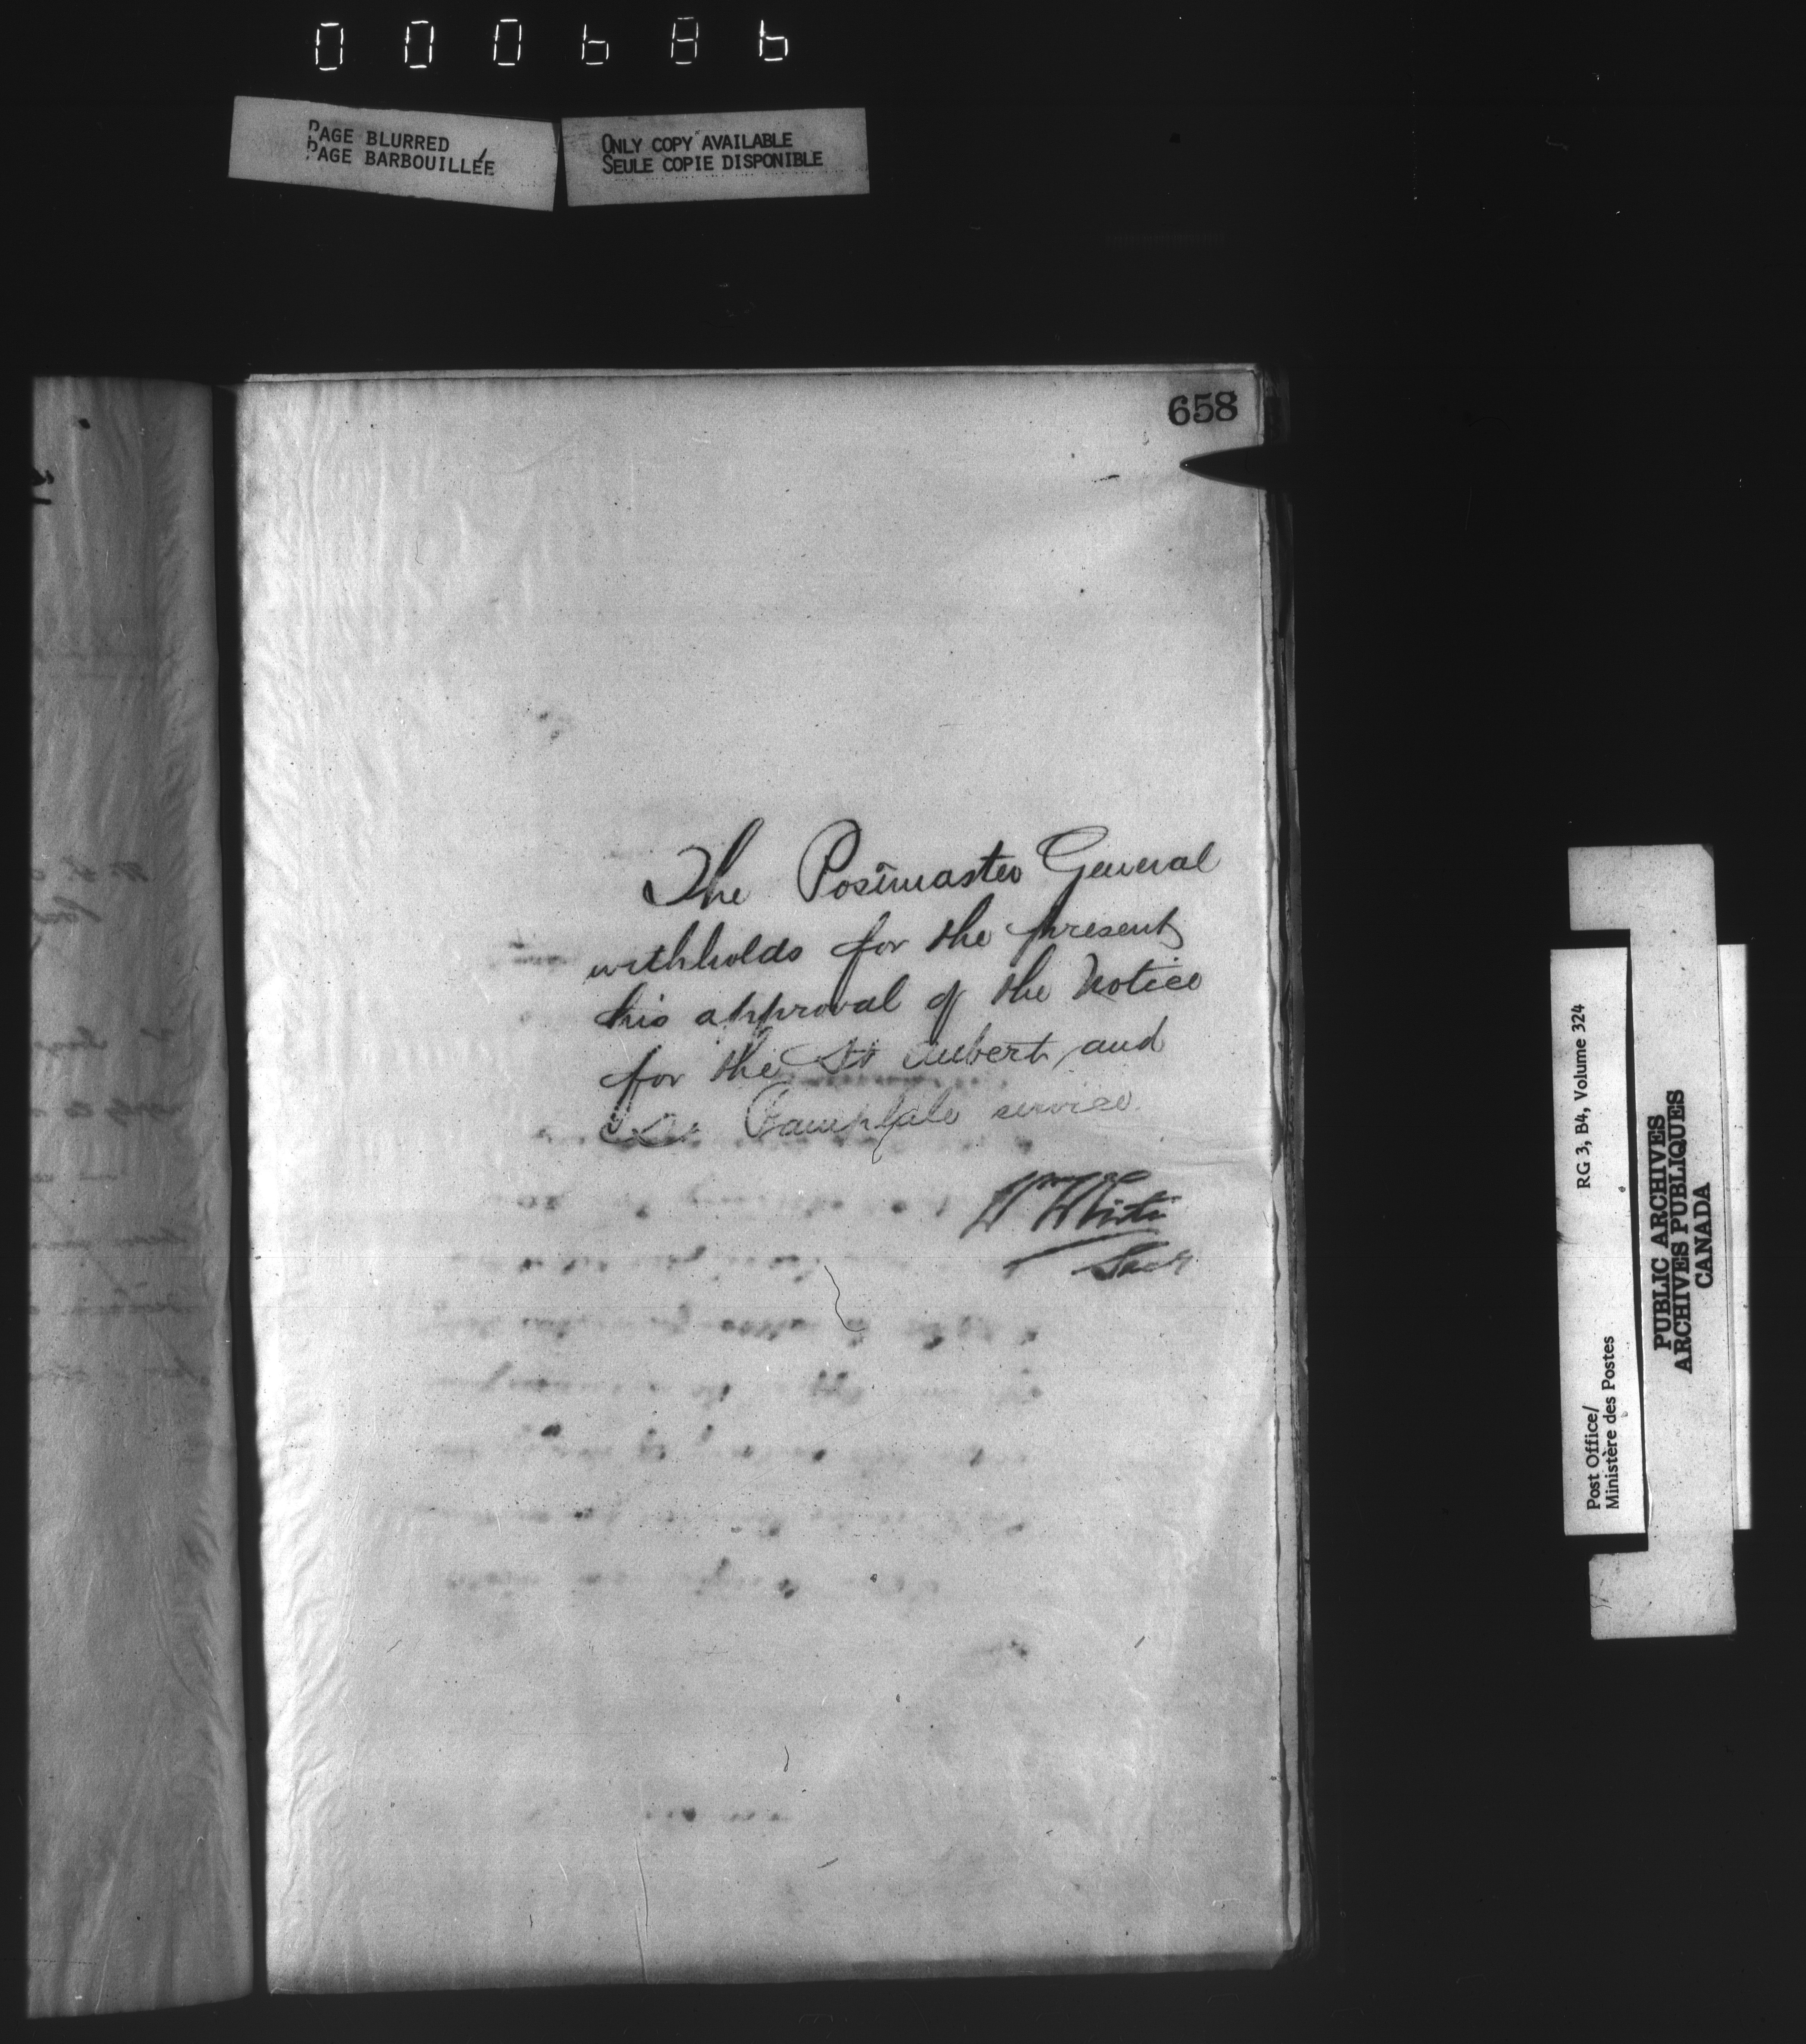 000686
PAGE BLURRED
PAGE BARBOUILLÉE
ONLY COPY AVAILABLE
SEULE COPIE DISPONIBLE
658
The Postmaster General
withholds for the present
his approval of the Notice
for the St Aubert and
St. Pamphile service.
Wm White
Secy
Post Office/
Ministère des Postes
RG 3, B4, Volume 324
PUBLIC ARCHIVES
ARCHIVES PUBLIQUES
CANADA